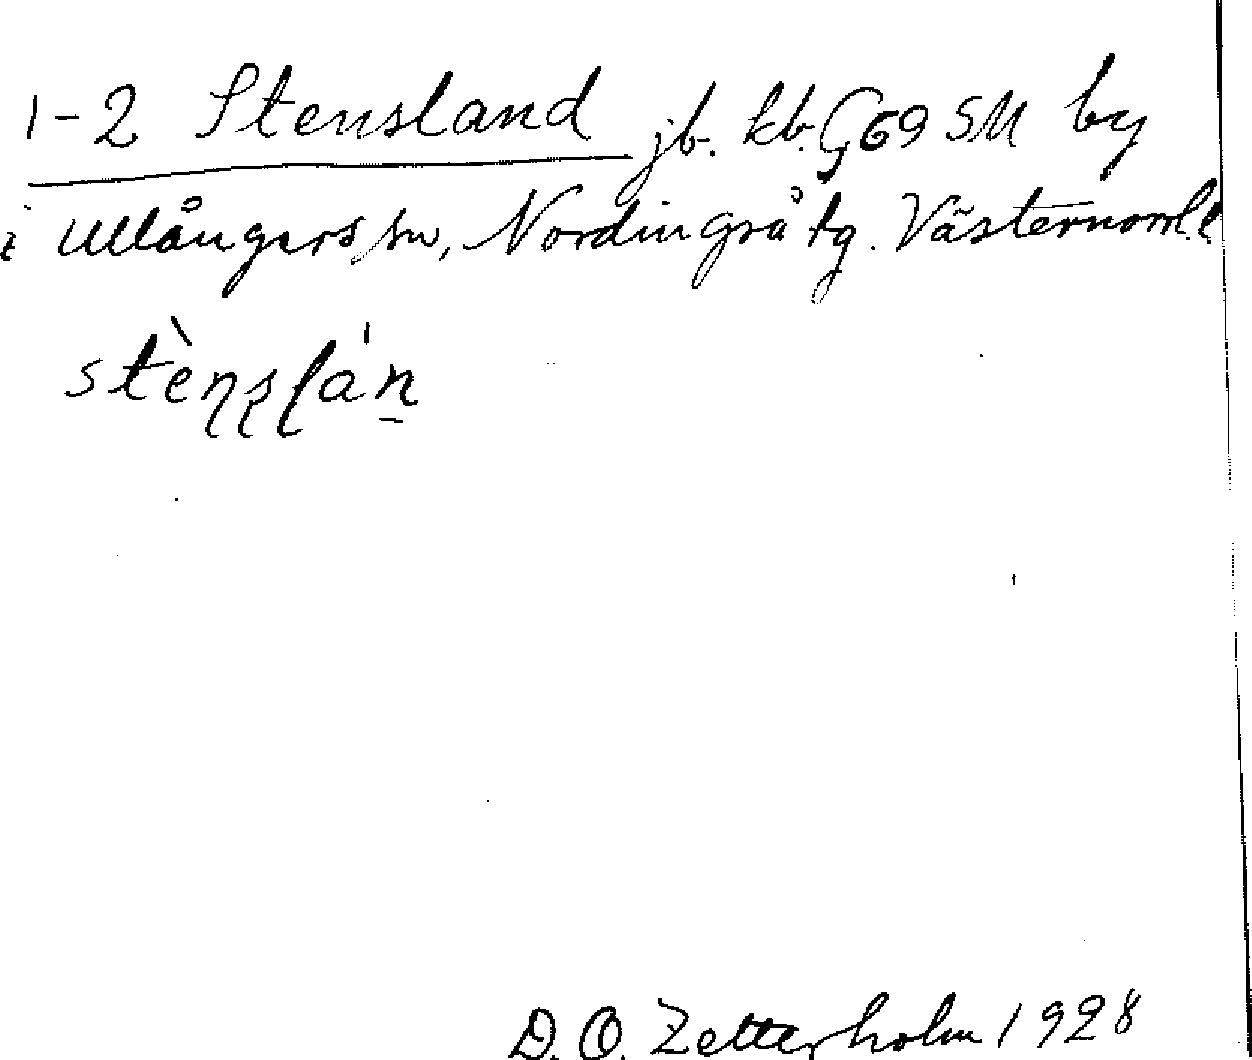 1-2 Stensland jb. kb. G69 SM by
i Ullångers sn, Nordingrå tg. Västernorrl. l
stèn̩ʂɭán
D. O. Zetterholm 1928